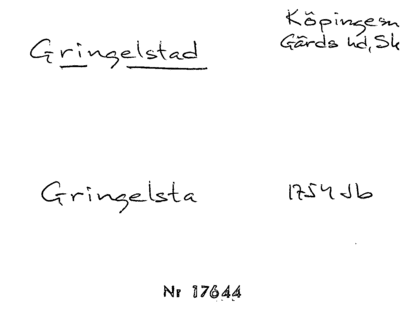 Gringelstad
Köpinge sn
Gärds hd, Sk
Gringelsta
1754 Jb
Nr 17644